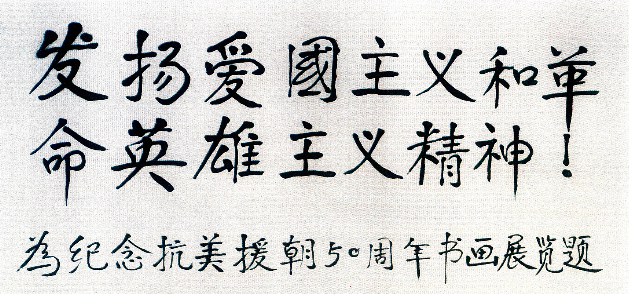 发扬爱國主义和革
命英雄主义精神！
为纪念抗美援朝50周年书画展览题